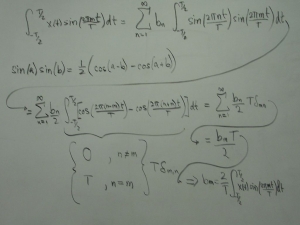 ∫_{-T/2}^{T/2} x(t) sin(2πmt/T) dt = Σ_{n=1}^{∞} b_n ∫_{-T/2}^{T/2} sin(2πnt/T) sin(2πmt/T) dt
sin(a) sin(b) = 1/2 (cos(a-b) - cos(a+b))
= Σ_{n=1}^{∞} b_n/2 ∫_{-T/2}^{T/2} [cos(2π(n-m)t/T) - cos(2π(n+m)t/T)] dt = Σ_{n=1}^{∞} b_n/2 T δ_{mn}
= b_m T/2
{ 0 , n≠m
T , n=m } T δ_{mn} ⇒ b_m = 2/T ∫_{-T/2}^{T/2} x(t) sin(2πmt/T) dt